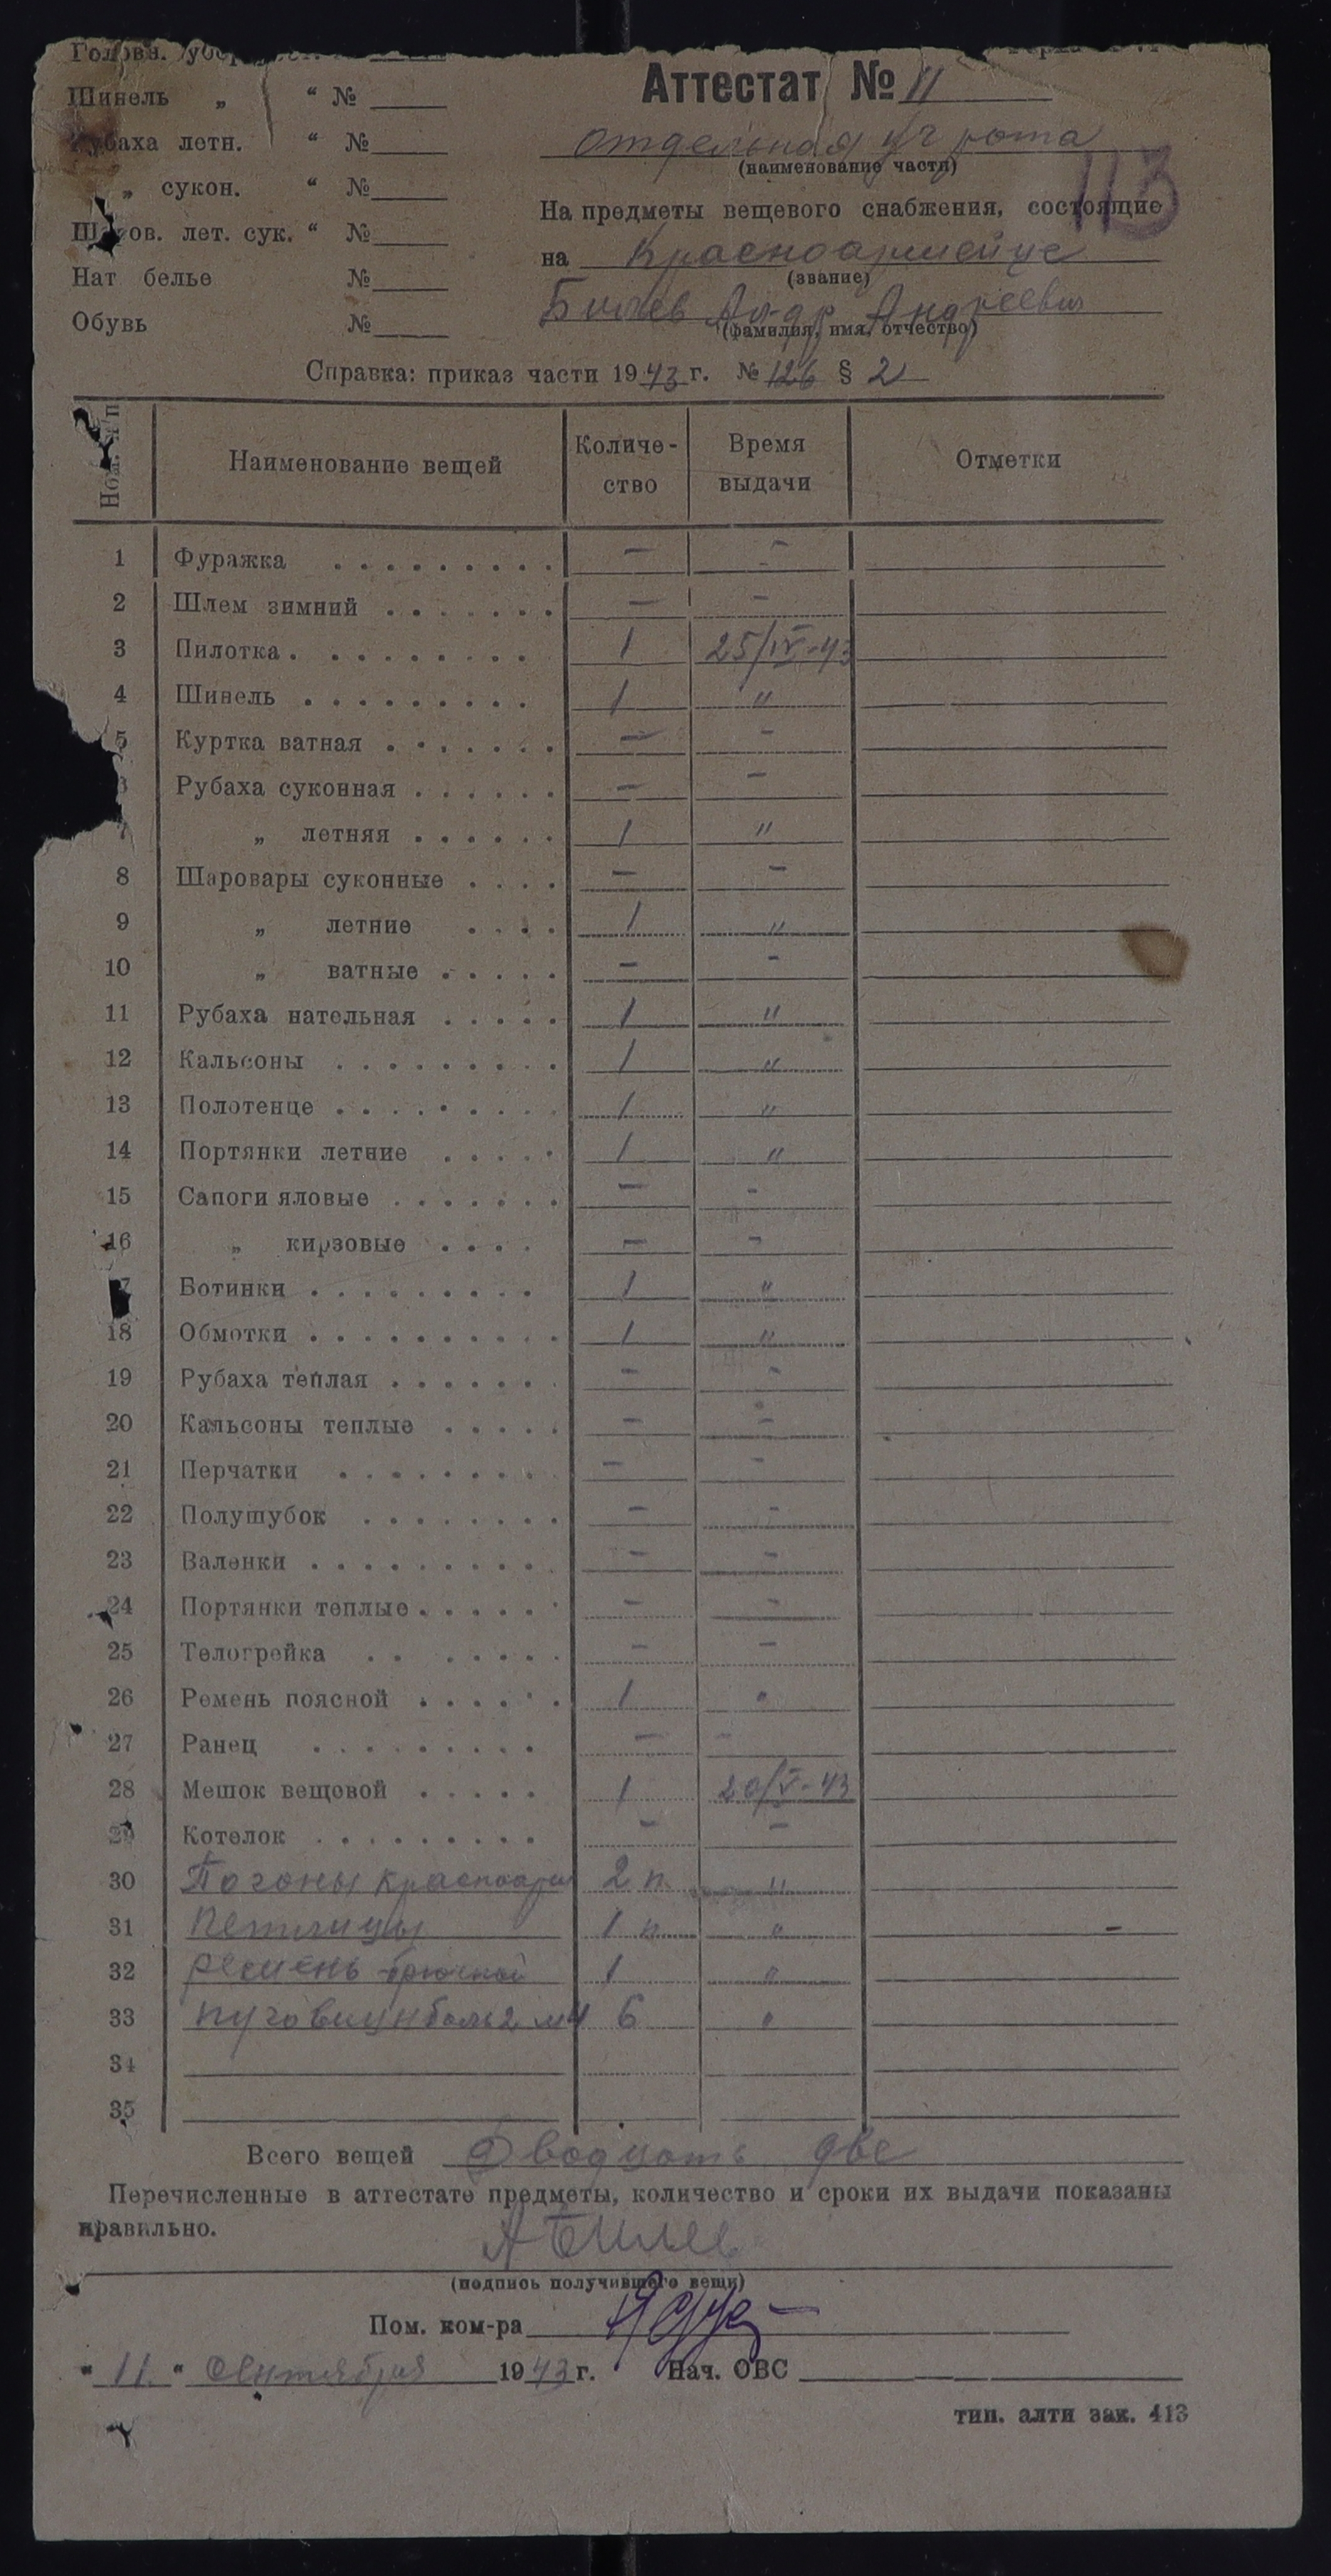 Головн.
Аттестат № 11
Шинель „ “ №
Рубаха летн. “ №
отдельная уч рота
(наименование части)
113
„ сукон. “ №
На предметы вещевого снабжения, состоящие
Шаров. лет. сук. “ №
на Красноармейце
(звание)
Нат белье №
Андреевич
(фамилия, имя, отчество)
Обувь №
Справка: приказ части 1943 г. № 126 § 2
Ном. п/п Наименование вещей Количе-ство Время выдачи Отметки
1 Фуражка . . . . . . . . . — —
2 Шлем зимний . . . . . . . — —
3 Пилотка . . . . . . . . . 1 25/IV-43
4 Шинель . . . . . . . . . 1 "
5 Куртка ватная . . . . . . . — —
6 Рубаха суконная . . . . . . — —
7 „ летняя . . . . . . 1 "
8 Шаровары суконные . . . . — —
9 „ летние . . . . 1 "
10 „ ватные . . . . . — —
11 Рубаха нательная . . . . . 1 "
12 Кальсоны . . . . . . . . . 1 "
13 Полотенце . . . . . . . . . 1 "
14 Портянки летние . . . . . 1 "
15 Сапоги яловые . . . . . . . — —
16 „ кирзовые . . . . — —
17 Ботинки . . . . . . . . . 1 "
18 Обмотки . . . . . . . . . . 1 "
19 Рубаха теплая . . . . . . . — —
20 Кальсоны теплые . . . . . — —
21 Перчатки . . . . . . . . — —
22 Полушубок . . . . . . . . — —
23 Валенки . . . . . . . . . . — —
24 Портянки теплые . . . . . — —
25 Телогрейка . . . . . . . — —
26 Ремень поясной . . . . . . 1 "
27 Ранец . . . . . . . . . — —
28 Мешок вещовой . . . . . 1 20/V-43
29 Котелок . . . . . . . . . — —
30 Погоны красноарм 2 п. "
31 Петлицы 1 п. " -
32 Ремень брючной 1 "
33 пуговиц боль 2 м 4 6 "
34
35
Всего вещей Двадцать две
Перечисленные в аттестате предметы, количество и сроки их выдачи показаны
правильно.
(подпись получившего вещи)
Пом. ком-ра
„ 11 “ Сентября 1943 г. Нач. ОВС
тип. алти зак. 413